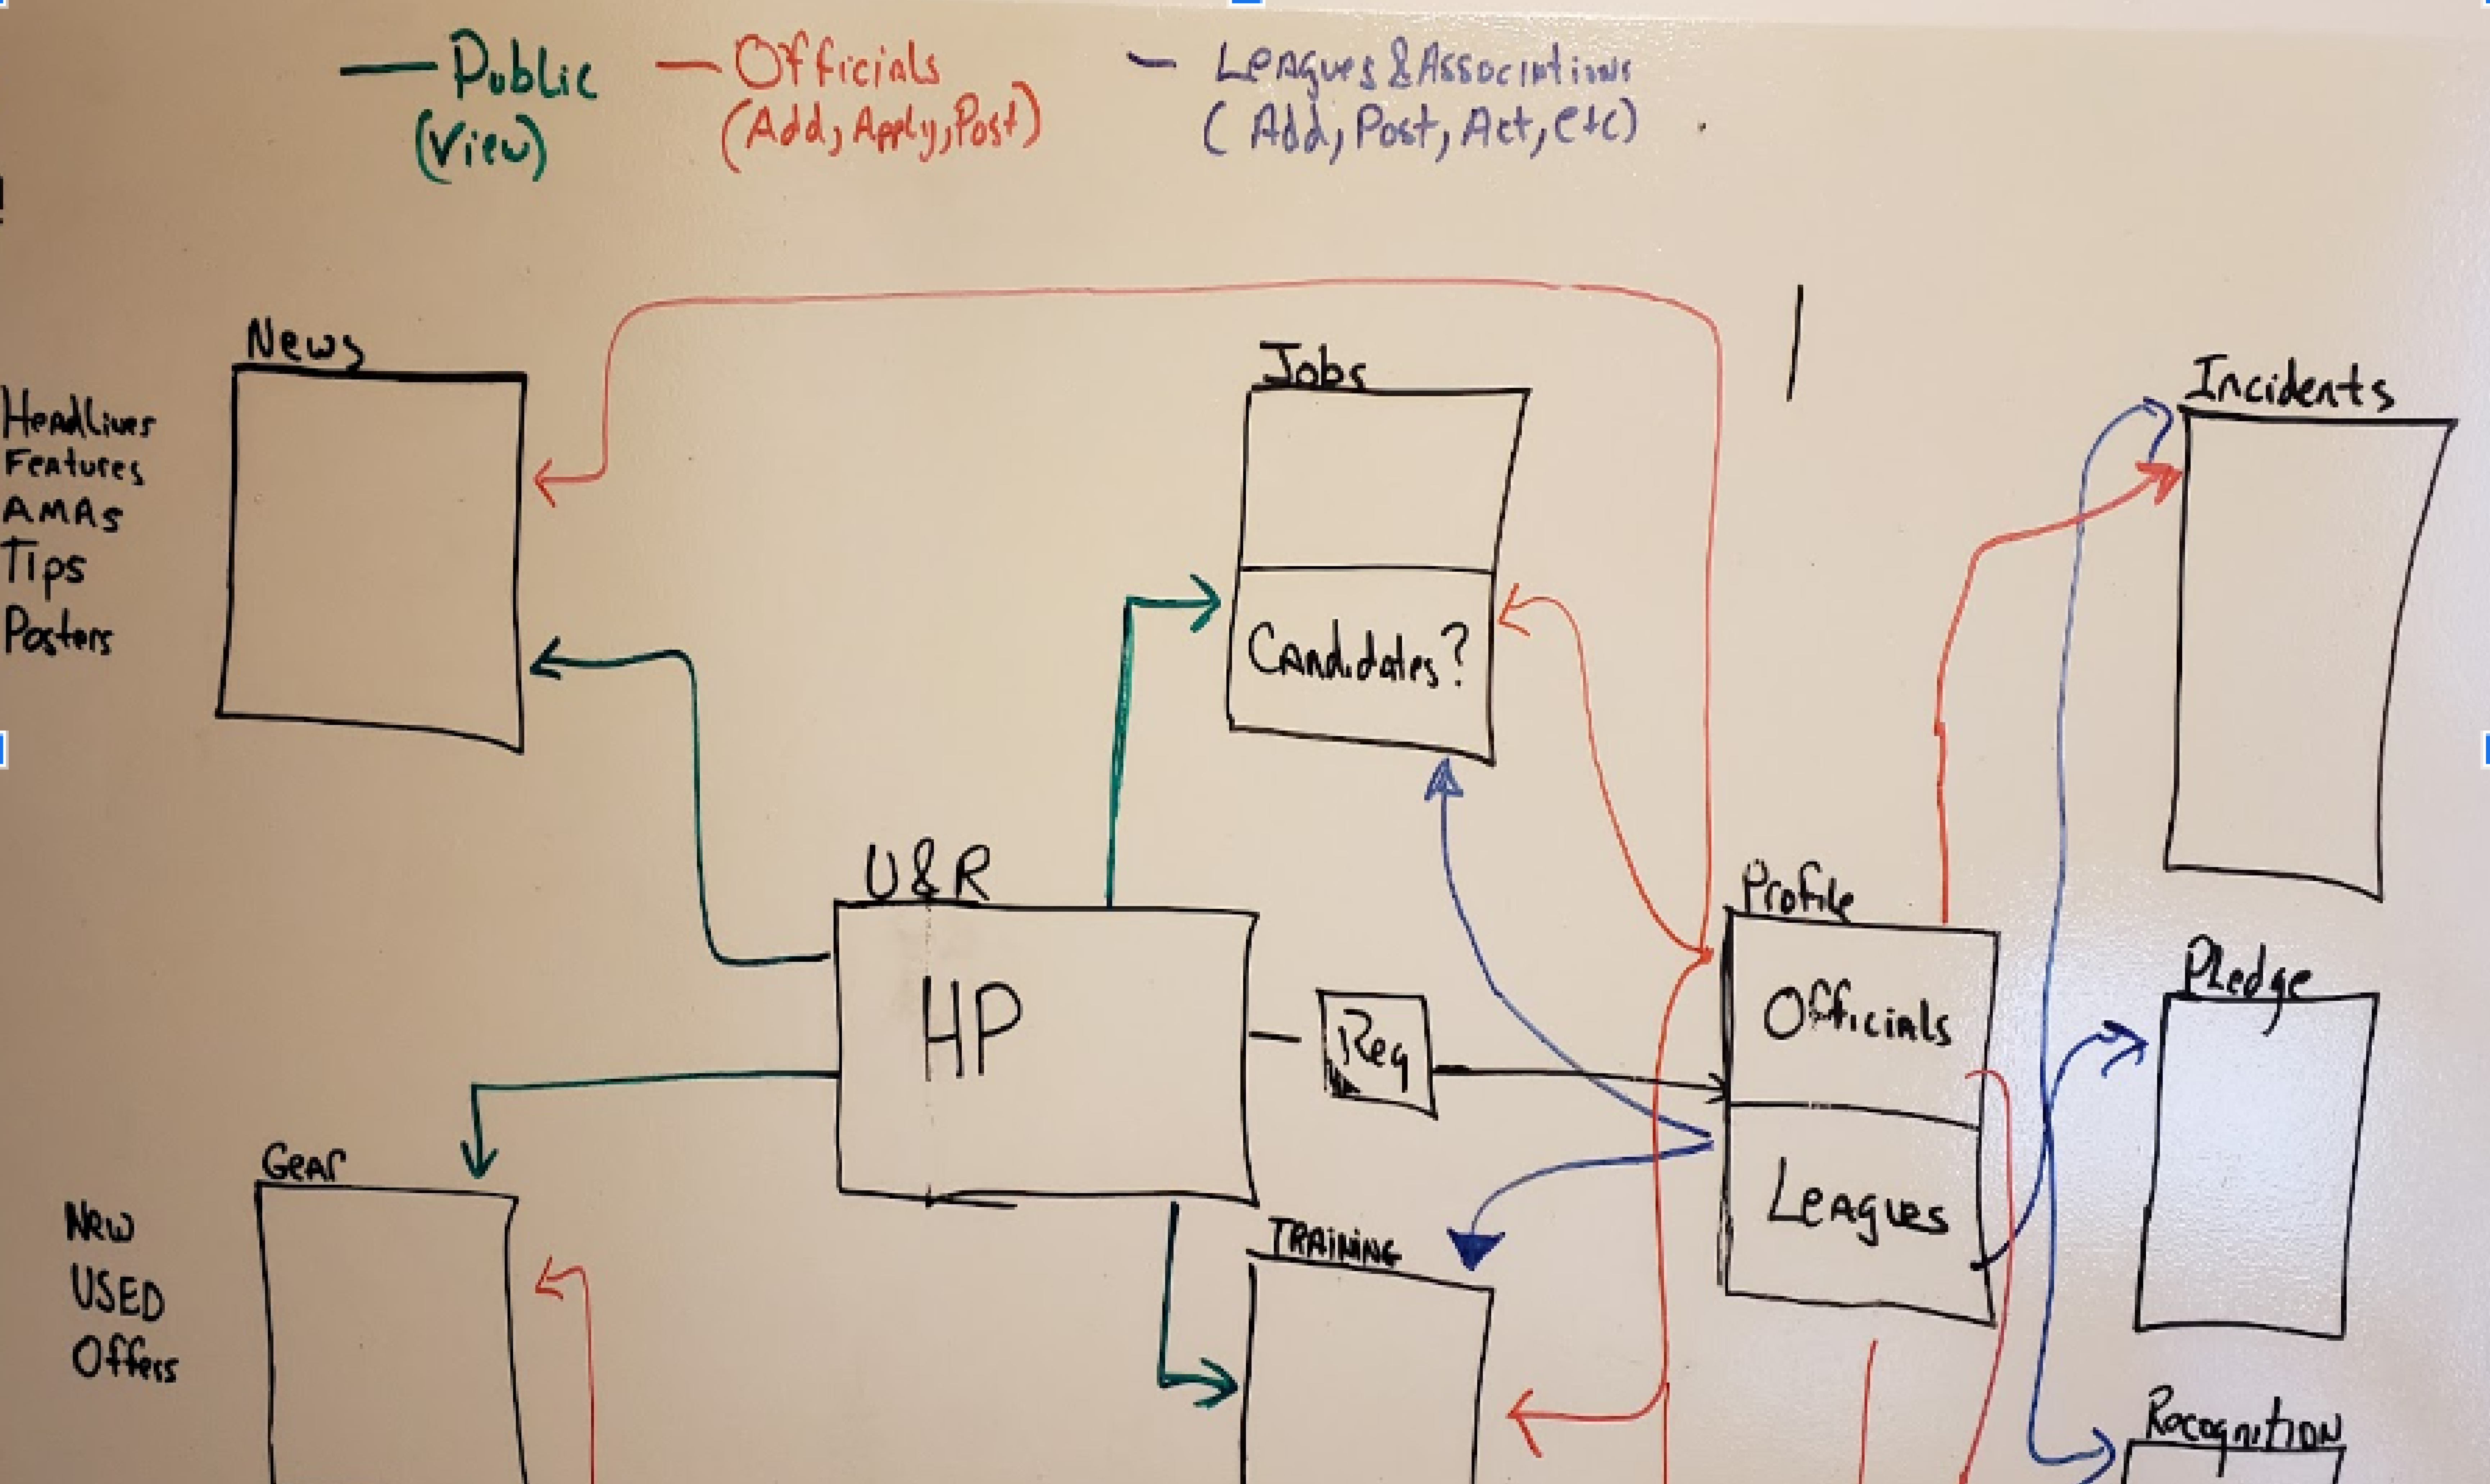 Public
(View)
Officials
(Add, Apply, Post)
Leagues & Associations
(Add, Post, Act, etc)
News
Headlines
Features
AMAs
Tips
Posters
Jobs
Candidates?
Incidents
U&R
HP
Reg
Profile
Officials
Leagues
Pledge
Gear
New
USED
Offers
TRAINING
Racognition